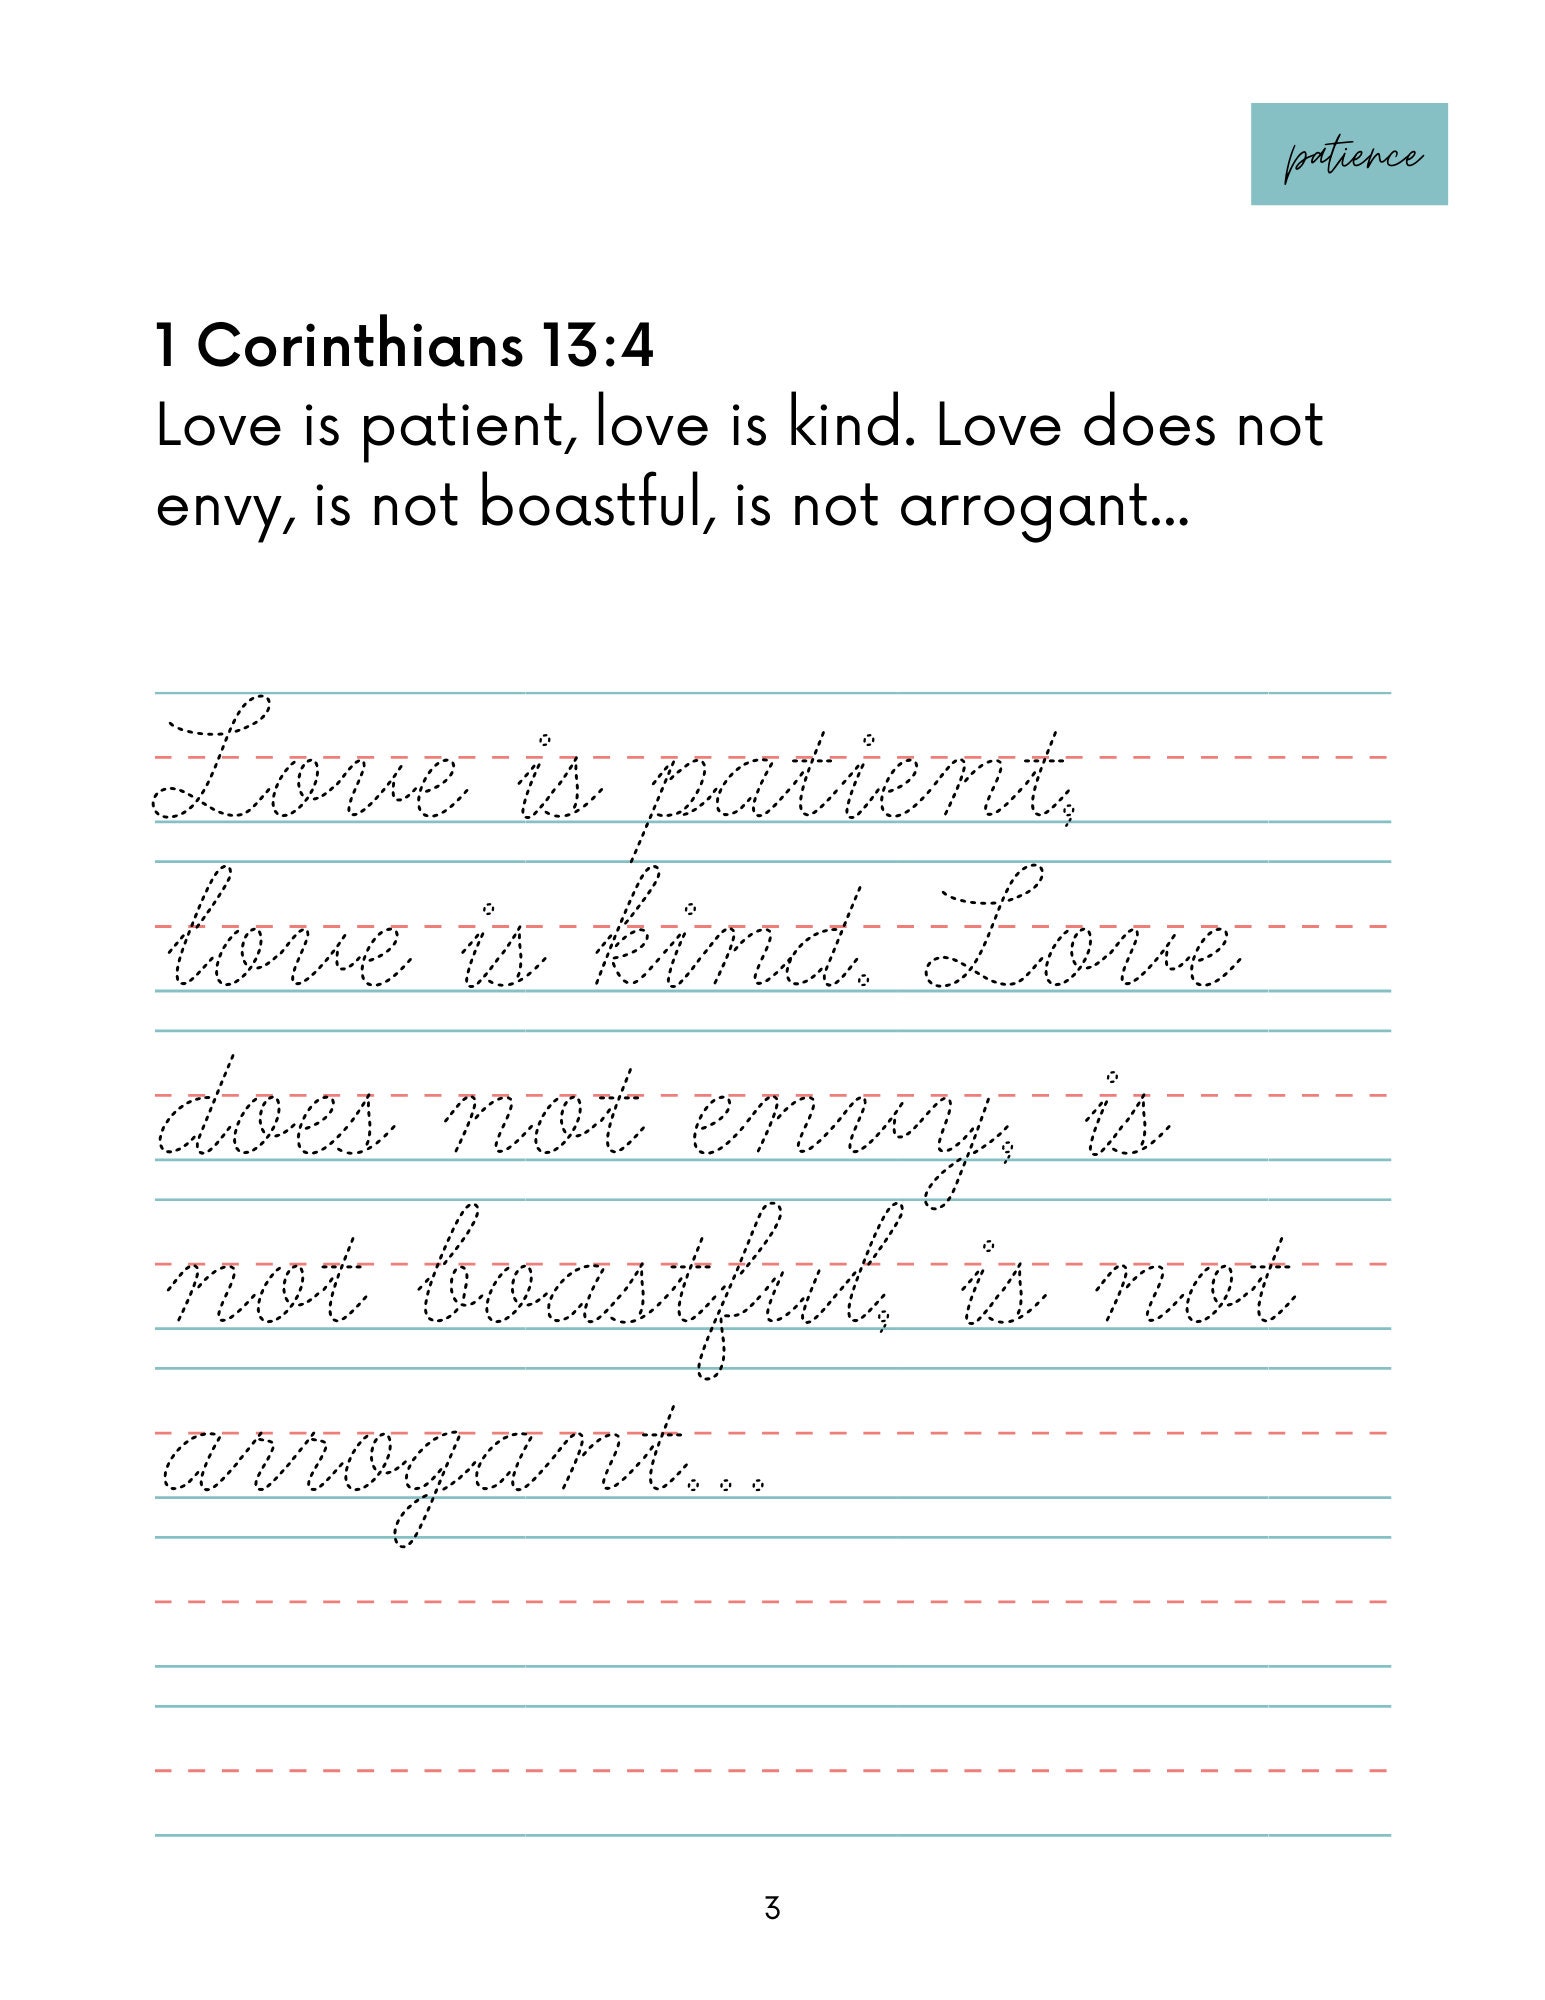 patience
1 Corinthians 13:4
Love is patient, love is kind. Love does not
envy, is not boastful, is not arrogant...
Love is patient,
love is kind. Love
does not envy, is
not boastful, is not
arrogant...
3